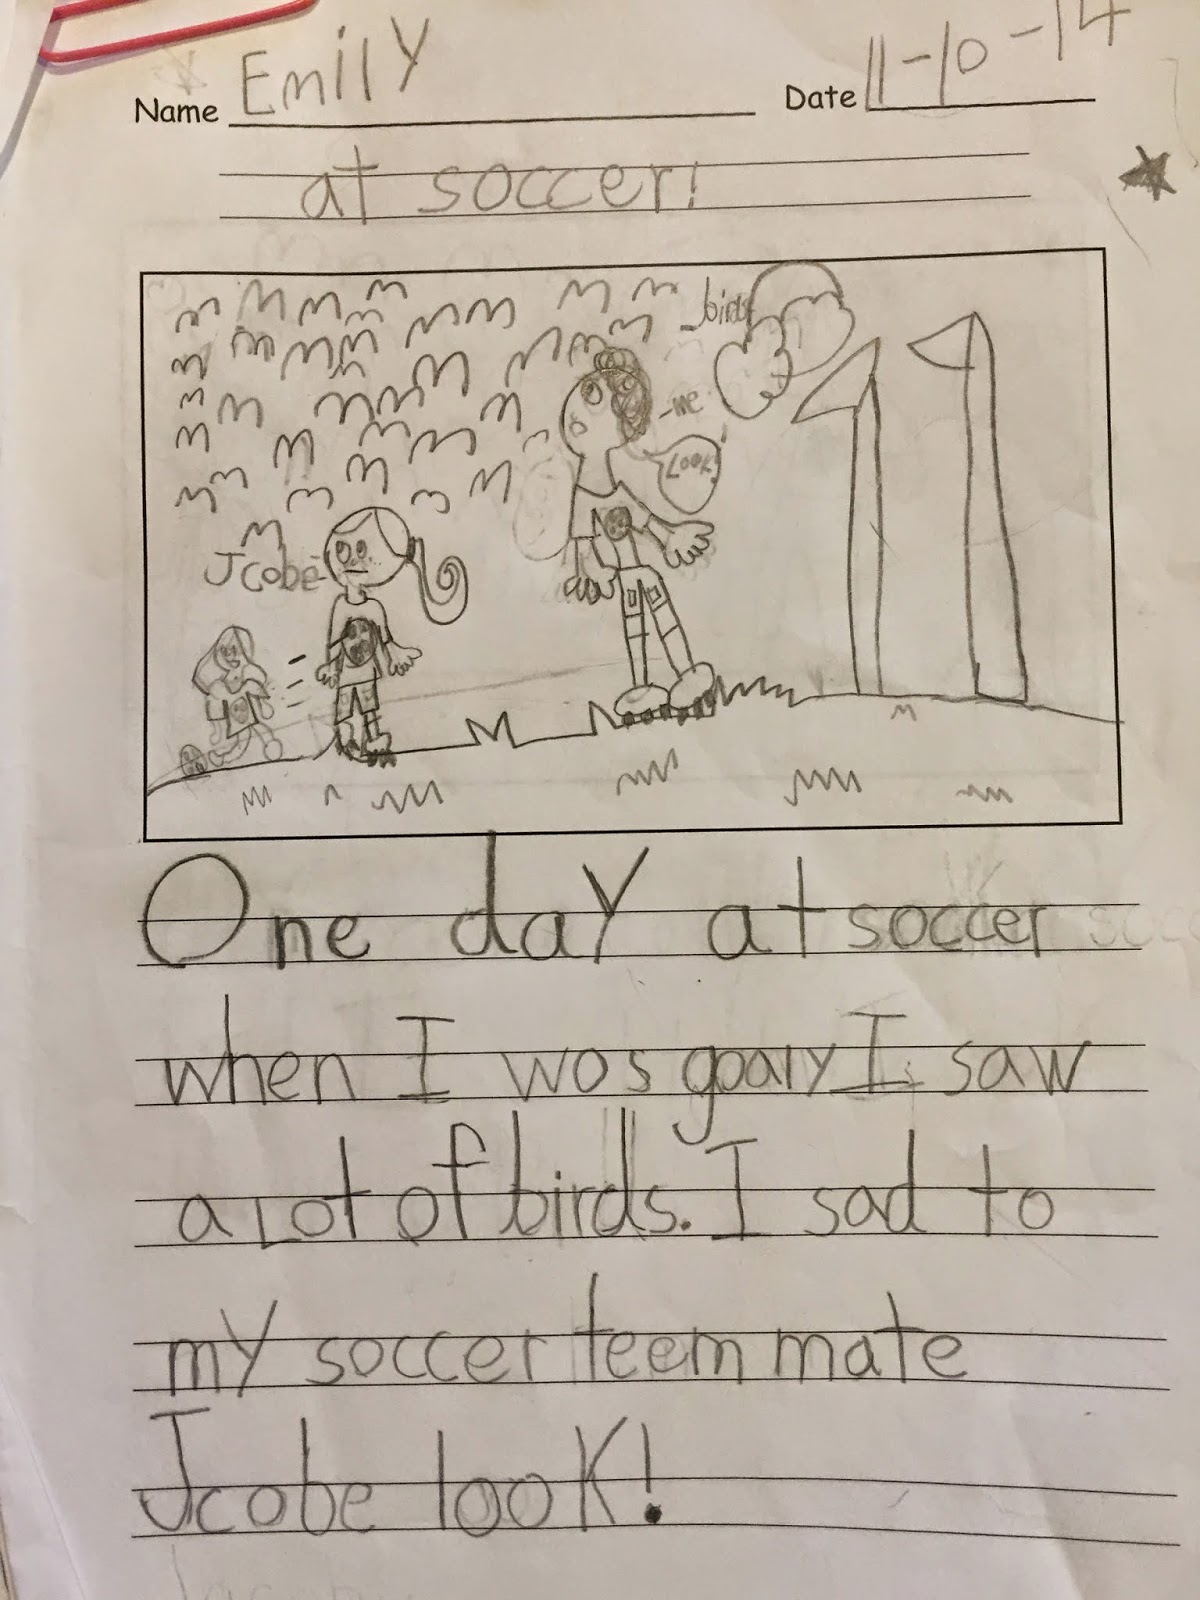 Name Emily Date 11-10-14
at soccer!
birds
me
Look!
Jcobe
One day at soccer
when I wos goaly I saw
a Lot of birds. I sad to
my soccer teem mate
Jcobe look!